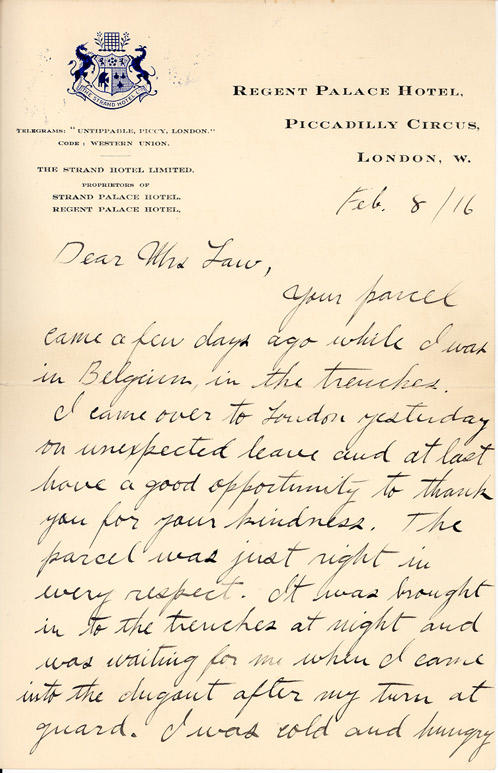 THE STRAND HOTEL LTD
REGENT PALACE HOTEL,
PICCADILLY CIRCUS,
LONDON, W.
TELEGRAMS: "UNTIPPABLE, PICCY, LONDON."
CODE: WESTERN UNION.
THE STRAND HOTEL LIMITED.
PROPRIETORS OF
STRAND PALACE HOTEL.
REGENT PALACE HOTEL.
Feb. 8/16
Dear Mrs Law,
Your parcel
came a few days ago while I was
in Belgium, in the trenches.
I came over to London yesterday
on unexpected leave and at last
have a good opportunity to thank
you for your kindness. The
parcel was just right in
every respect. It was brought
in to the trenches at night and
was waiting for me when I came
into the dugout after my turn at
guard. I was cold and hungry